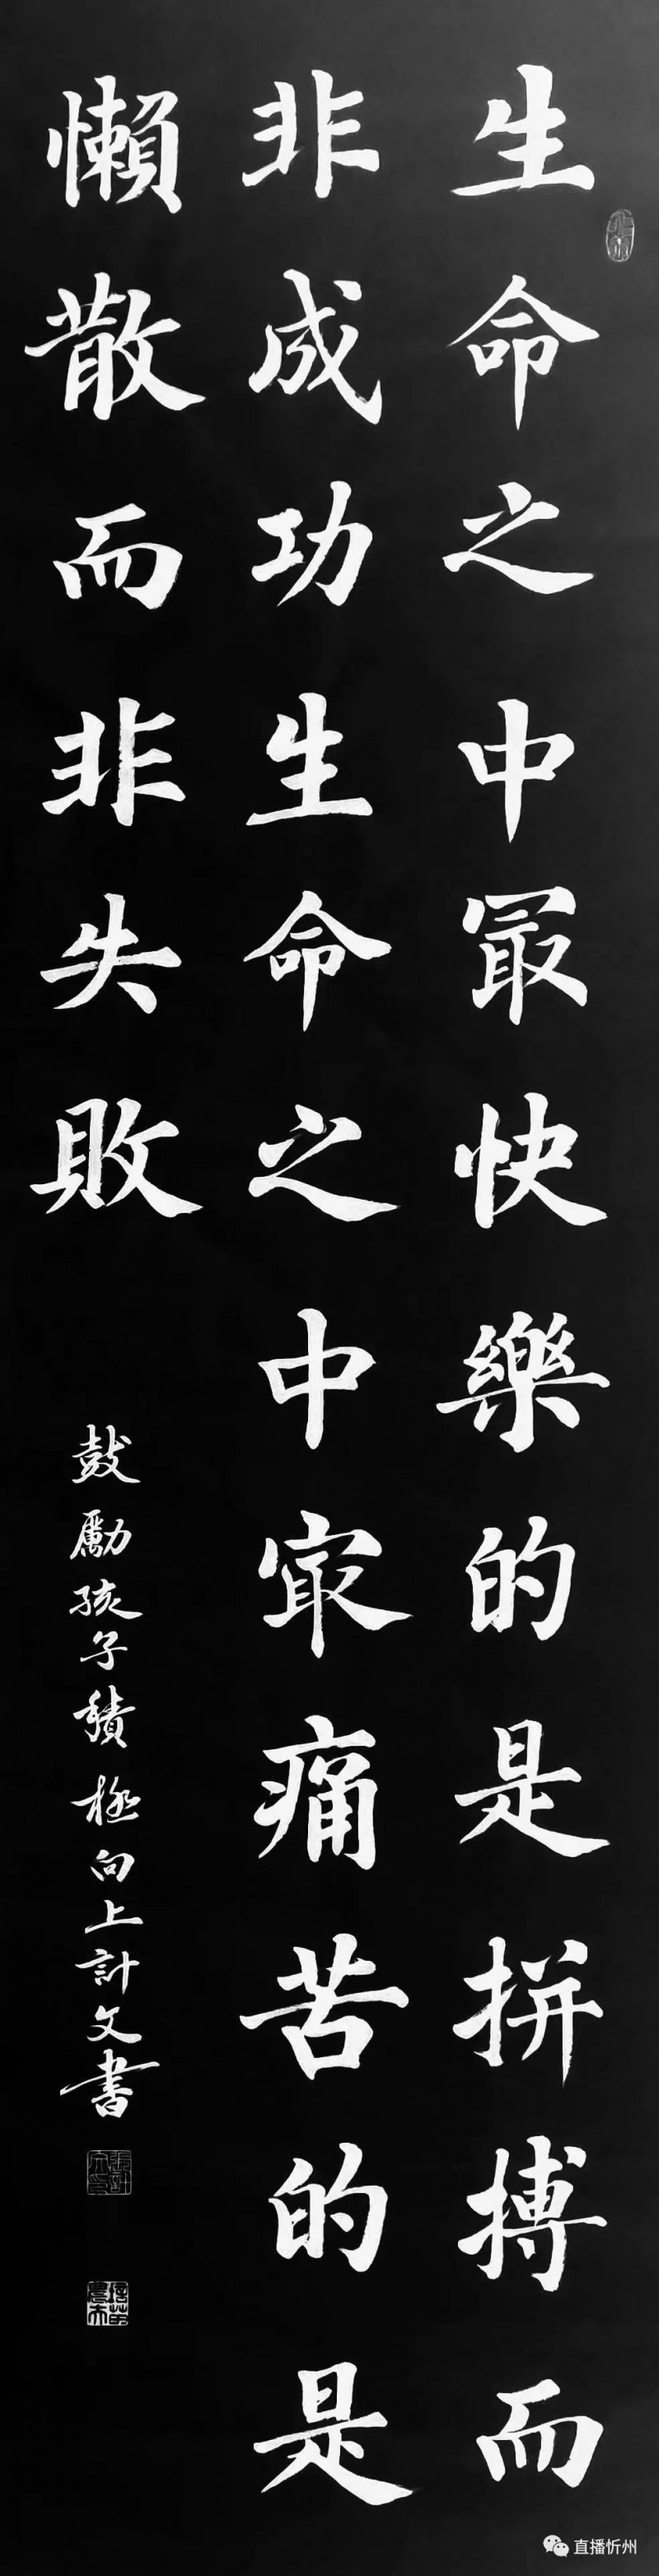 生命之中冣快樂的是拼搏而
非成功生命之中㝡痛苦的是
懶散而非失敗
鼓勵孩子積極向上計文書
直播忻州